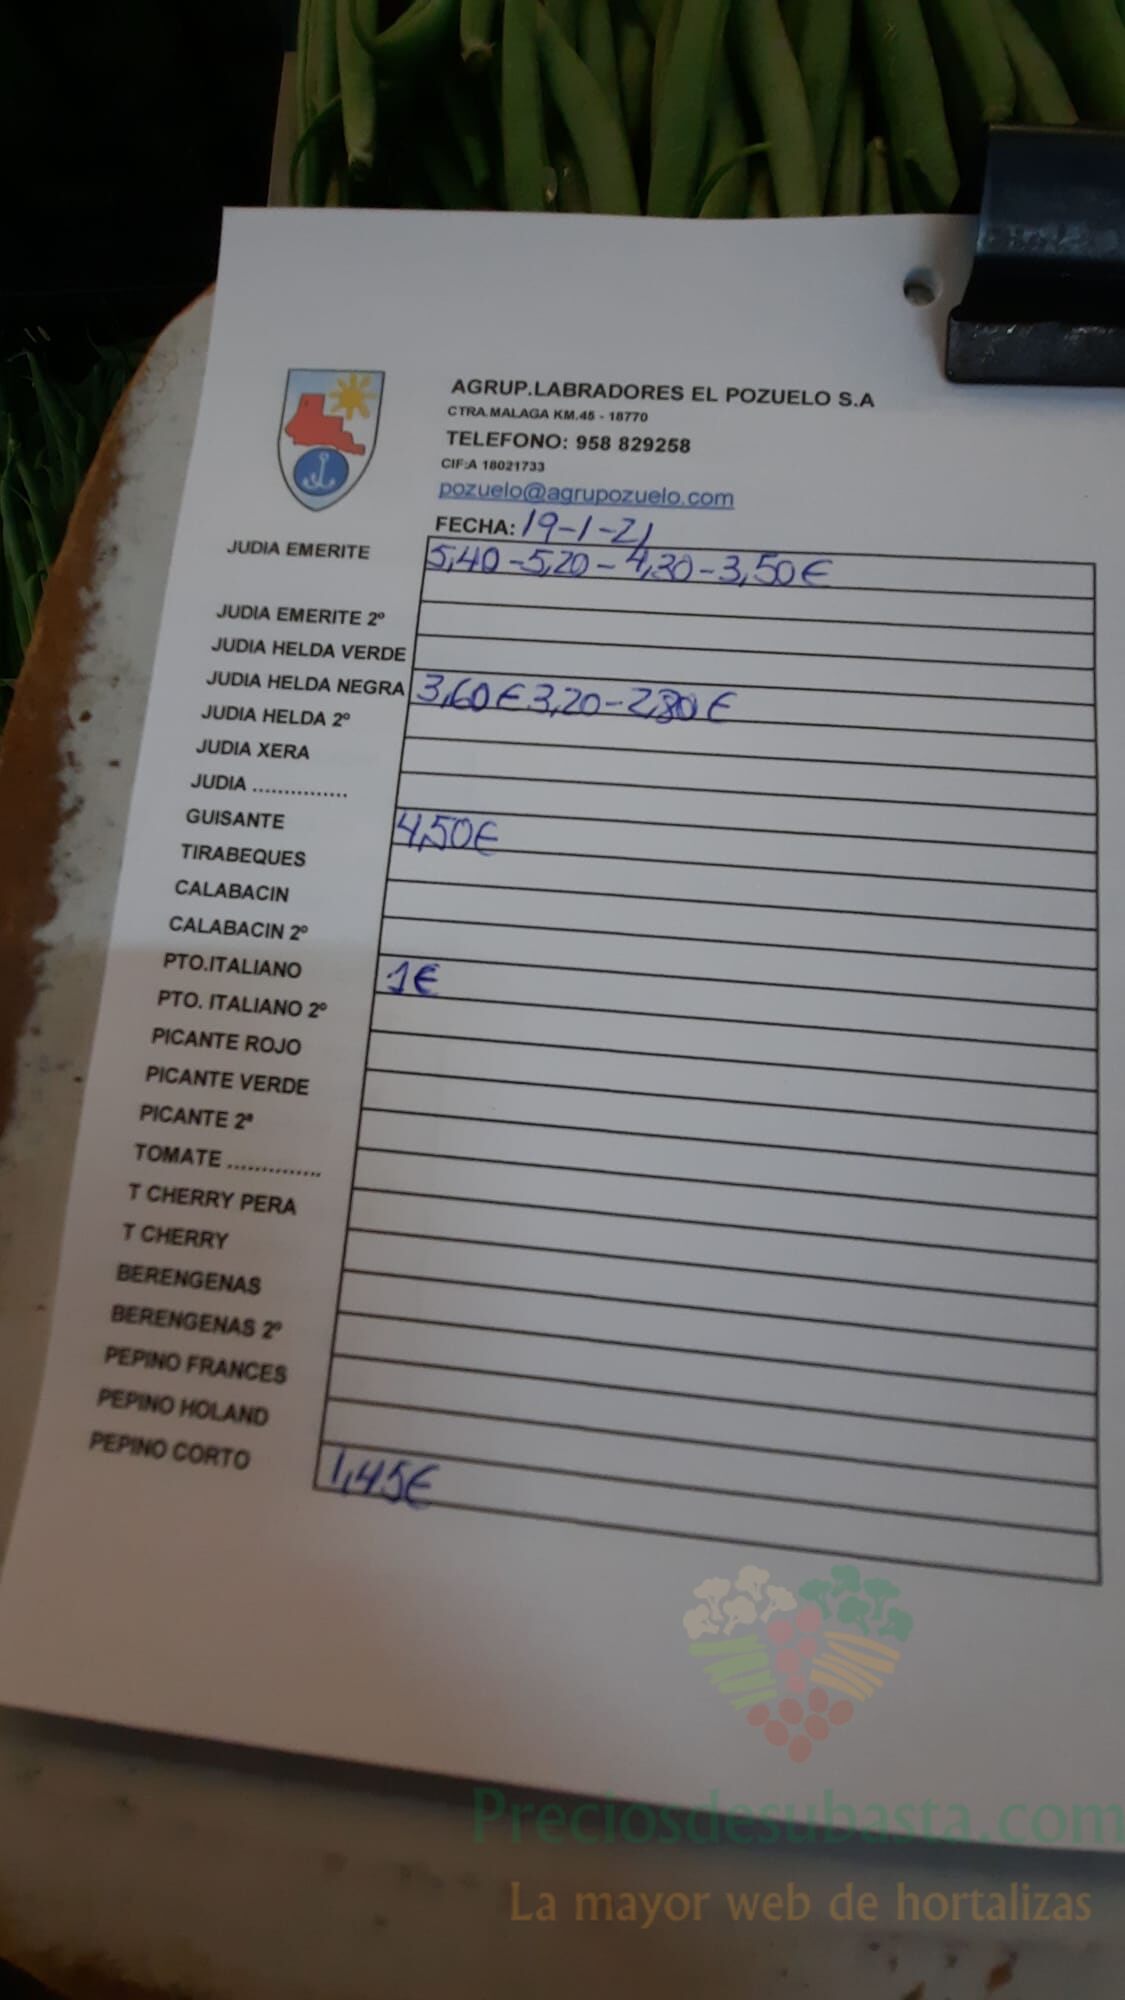 AGRUP.LABRADORES EL POZUELO S.A
CTRA.MALAGA KM.45 - 18770
TELEFONO: 958 829258
CIF:A 18021733
pozuelo@agrupozuelo.com
FECHA: 19-1-21
JUDIA EMERITE 5,40-5,20-4,30-3,50€
JUDIA EMERITE 2º
JUDIA HELDA VERDE
JUDIA HELDA NEGRA 3,60€ 3,20-2,80€
JUDIA HELDA 2º
JUDIA XERA
JUDIA ...............
GUISANTE 4,50€
TIRABEQUES
CALABACIN
CALABACIN 2º
PTO.ITALIANO 1€
PTO. ITALIANO 2º
PICANTE ROJO
PICANTE VERDE
PICANTE 2ª
TOMATE ..............
T CHERRY PERA
T CHERRY
BERENGENAS
BERENGENAS 2º
PEPINO FRANCES
PEPINO HOLAND
PEPINO CORTO 1,45€
Preciosdesubasta.com
La mayor web de hortalizas